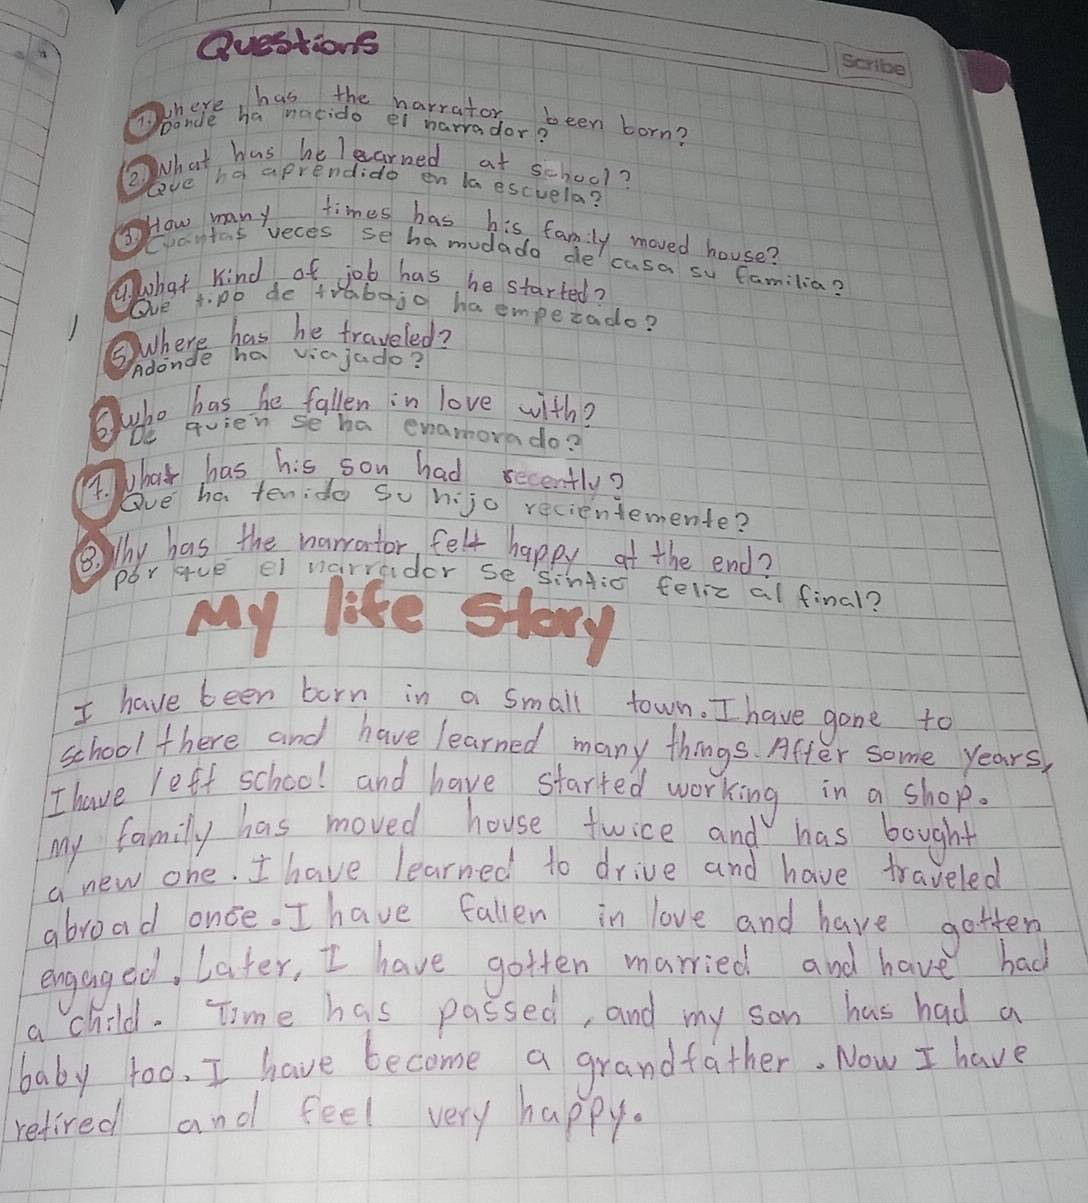 Questions
Scribe
1. Where has the narrator been born?
Donde ha nacido el narrador?
2. What has he learned at school?
Que ha aprendido en la escuela?
3. How many times has his family moved house?
Cuantas veces se ha mudado de casa su familia?
4. What kind of job has he started?
Que tipo de trabajo ha empezado?
5. Where has he traveled?
Adonde ha viajado?
6. who has he fallen in love with?
De quien se ha enamorado?
7. What has his son had recently?
Que ha tenido su hijo recientemente?
8. Why has the narrator felt happy at the end?
por que el narrador se sintio feliz al final?
My life Story
I have been born in a small town. I have gone to
school there and have learned many things. After some years,
I have left school and have started working in a shop.
my family has moved house twice and has bought
a new one. I have learned to drive and have traveled
abroad once. I have fallen in love and have gotten
engaged. Later, I have gotten married and have had
a child. Time has passed, and my son has had a
baby too. I have become a grandfather. Now I have
retired and feel very happy.